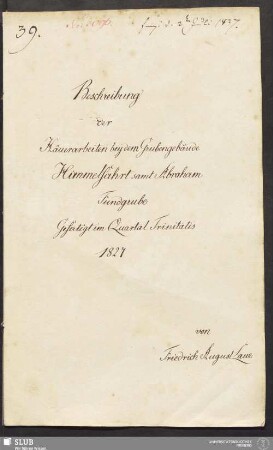 39.
1827.
Beschreibung
der
Häuerarbeiten bey dem Grubengebäude
Himmelfahrt samt Abraham
Fundgrube
Gefertigt im Quartal Trinitatis
1827
von
Friedrich August Laue
SLUB